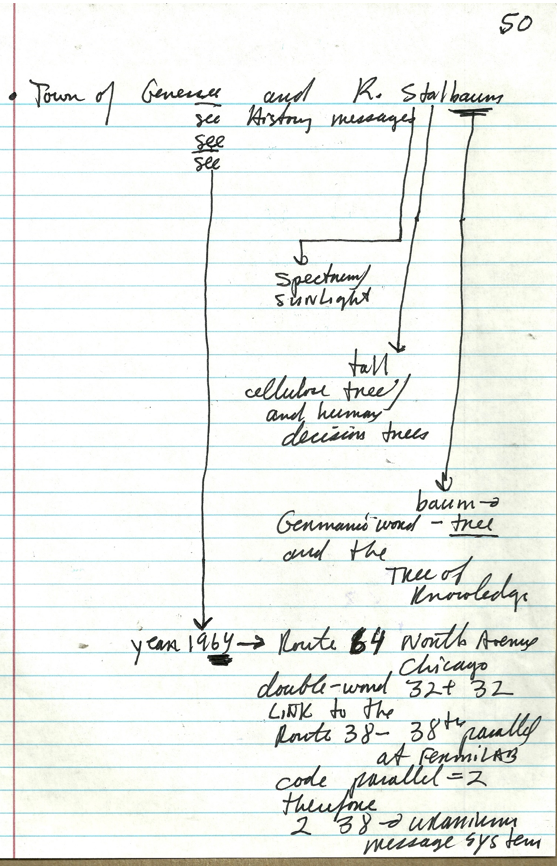 50
• Town of Genessee and R. Stalbaum
see History messages
see
see
Spectrum/
sunlight
tall
cellulose tree/
and human
decision trees
baum →
Germanic word - tree
and the
Tree of
Knowledge
year 1964 → Route 64 North Avenue
Chicago
double-word 32 + 32
LINK to the
Route 38 - 38th parallel
at FermiLAB
code parallel = 2
therefore
2 38 → uranium
message system